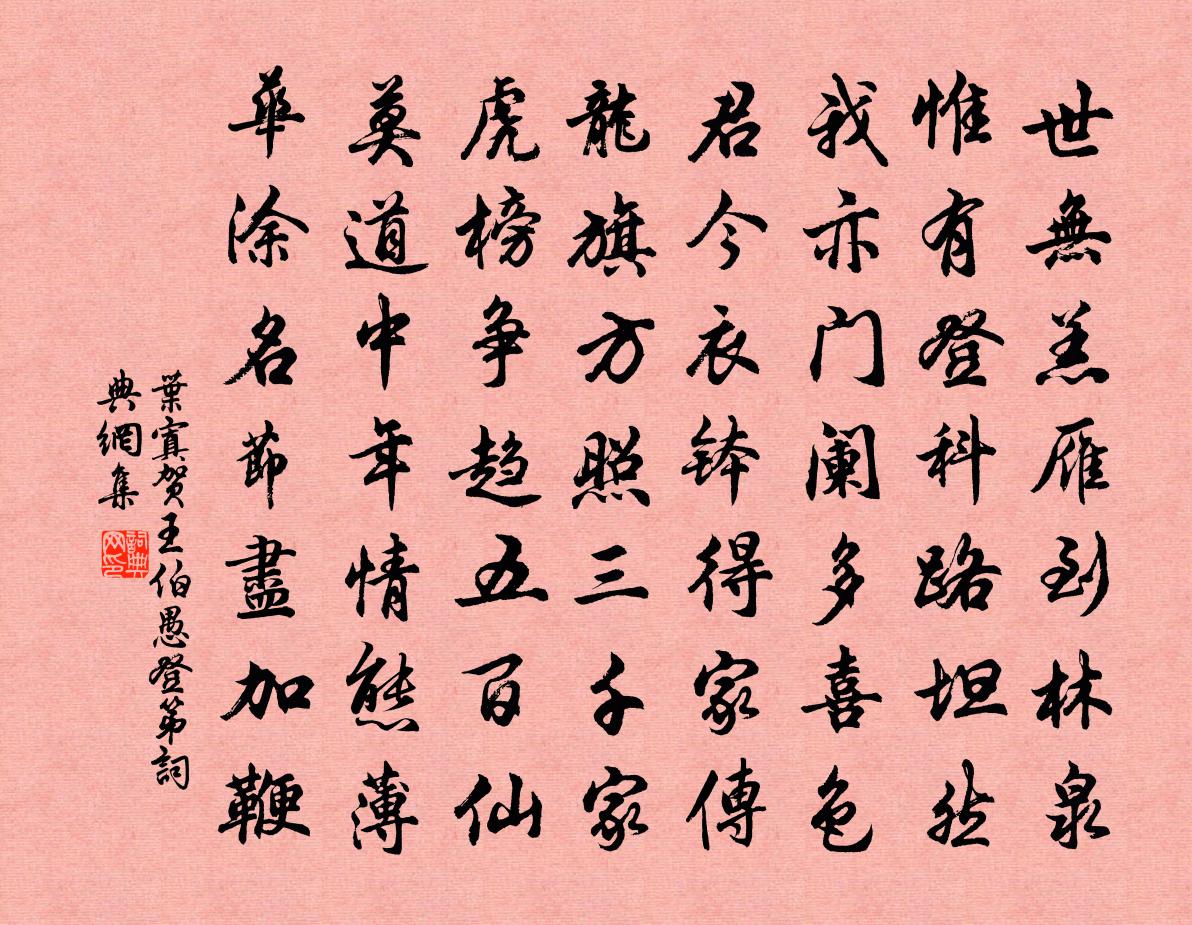 世無羔雁到林泉
惟有登科路坦然
我亦门阑多喜色
君今衣钵得家傳
龍旗方照三千家
虎榜争趋五百仙
莫道中年情態薄
華涂名節盡加鞭
葉寘贺王伯愚登第詞
典網集
詞典网印